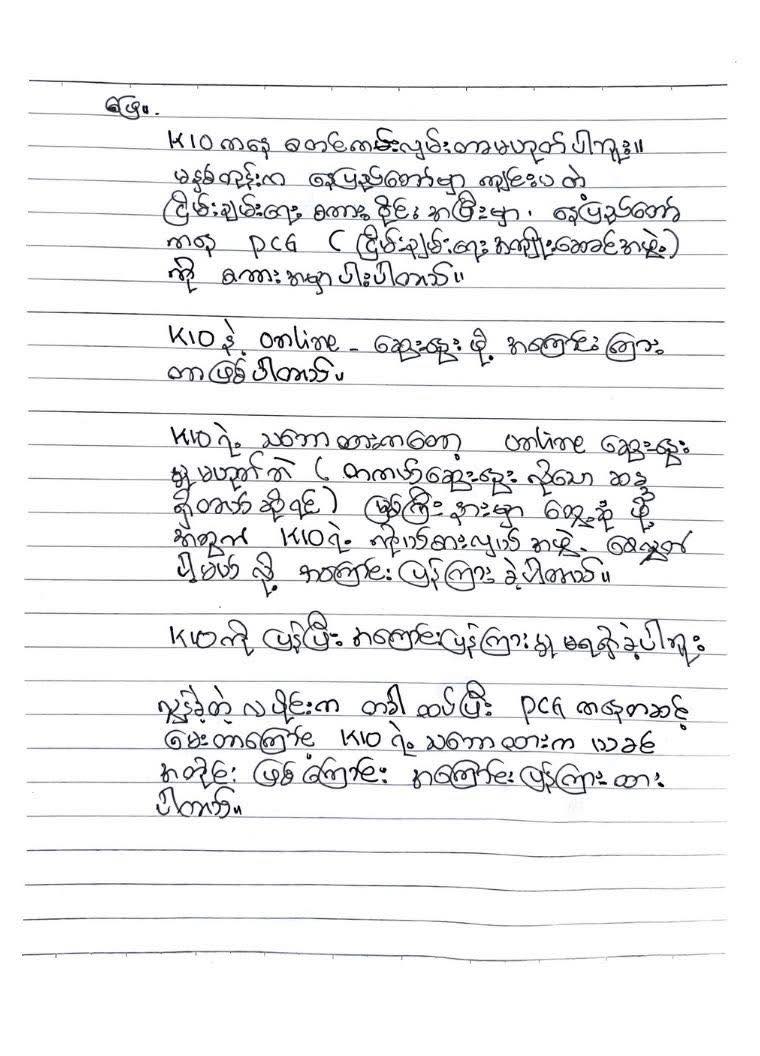 ဖြေ။
KIO ကနေ စတင်ကမ်းလှမ်းတာမဟုတ်ပါဘူး။
မနှစ်တုန်းက နေပြည်တော်မှာ ကျင်းပတဲ့
ငြိမ်းချမ်းရေး စကားဝိုင်း အပြီးမှာ နေပြည်တော်
ကနေ PCG ( ငြိမ်းချမ်းရေးအကျိုးဆောင်အဖွဲ့ )
ကို စကားအမှာပါးပါတယ်။
KIO နဲ့ online - ဆွေးနွေးဖို့ အကြောင်းကြား
တာဖြစ်ပါတယ်။
KIO ရဲ့ သဘောထားကတော့ online ဆွေးနွေး
မှု မဟုတ်ဘဲ ( တကယ်ဆွေးနွေးလိုသော ဆန္ဒ
ရှိတယ်ဆိုရင် ) မြစ်ကြီးနားမှာ တွေ့ဆုံဖို့
အတွက် KIO ရဲ့ ကိုယ်စားလှယ်အဖွဲ့ စေလွှတ်
ပါ့မယ်လို့ အကြောင်းပြန်ကြားခဲ့ပါတယ်။
KIO ကို ပြန်ပြီး အကြောင်းပြန်ကြားမှု မရရှိခဲ့ပါဘူး
လွန်ခဲ့တဲ့ လပိုင်းက တခါထပ်ပြီး PCG ကနေတဆင့်
မေးတာကြောင့် KIO ရဲ့ သဘောထားက ယခင်
အတိုင်း ဖြစ်ကြောင်း အကြောင်းပြန်ကြားထား
ပါတယ်။